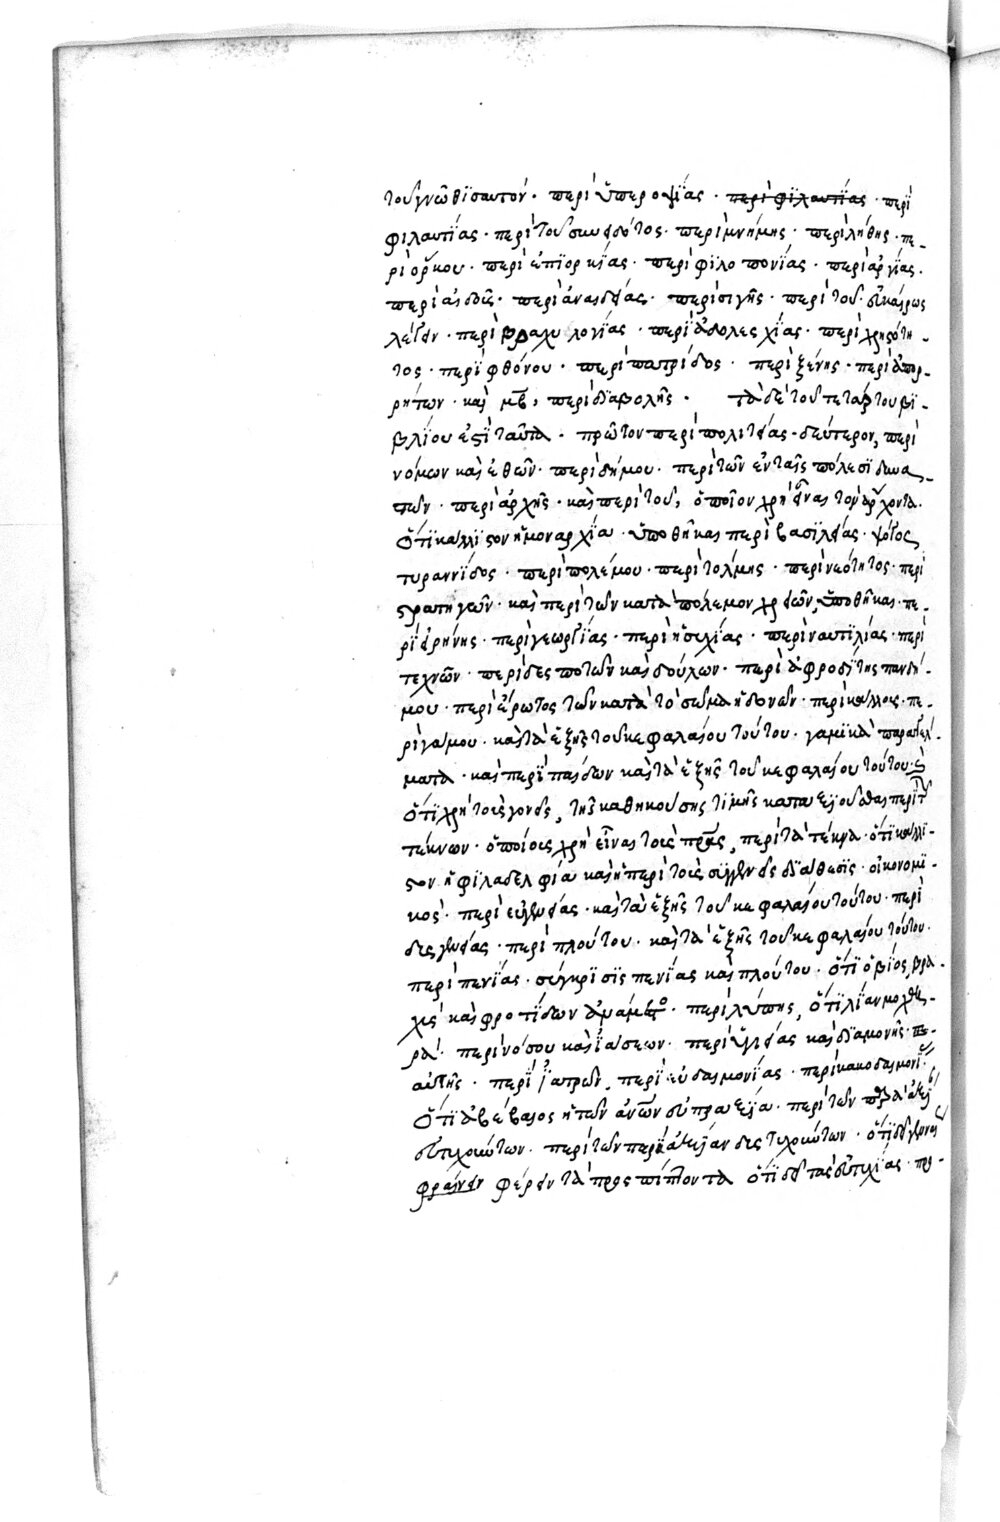 τοῦ γνῶθι σαυτόν · περὶ ὑπεροψίας · περὶ φιλαυτίας · περὶ
φιλαυτίας · περὶ τοῦ συνειδότος · περὶ μνήμης · περὶ λήθης · πε-
ρὶ ὅρκου · περὶ ἐπιορκίας · περὶ φιλοπονίας · περὶ ἀργίας ·
περὶ αἰδοῦς · περὶ ἀναιδείας · περὶ σιγῆς · περὶ τοῦ εὐκαίρως
λέγειν · περὶ βραχυλογίας · περὶ ἀδολεσχίας · περὶ χρηστότη-
τος · περὶ φθόνου · περὶ πατρίδος · περὶ ξένης · περὶ ἀπορ-
ρήτων · καὶ μβ, περὶ διαβολῆς · τὰ δὲ τοῦ τετάρτου βι-
βλίου ἐστὶ ταῦτα · πρῶτον περὶ πολιτείας · δεύτερον, περὶ
νόμων καὶ ἐθῶν · περὶ δήμου · περὶ τῶν ἐν ταῖς πόλεσι δυνα-
τῶν · περὶ ἀρχῆς · καὶ περὶ τοῦ, ὁποῖον χρὴ εἶναι τὸν ἄρχοντα ·
ὅτι κάλλιστον ἡ μοναρχία · ὑποθῆκαι περὶ βασιλείας · ψόγος
τυραννίδος · περὶ πολέμου · περὶ τόλμης · περὶ νεότητος · περὶ
στρατηγῶν · καὶ περὶ τῶν κατὰ πόλεμον χρειῶν, ὑποθῆκαι · πε-
ρὶ εἰρήνης · περὶ γεωργίας · περὶ ἡσυχίας · περὶ ναυτιλίας · περὶ
τεχνῶν · περὶ δεσποτῶν καὶ δούλων · περὶ ἀφροδίτης πανδή-
μου · περὶ ἔρωτος τῶν κατὰ τὸ σῶμα ἡδονῶν · περὶ κάλλους · πε-
ρὶ γάμου · καὶ τὰ ἑξῆς τοῦ κεφαλαίου τούτου · γαμικὰ παραγγέλ-
ματα · καὶ περὶ παίδων καὶ τὰ ἑξῆς τοῦ κεφαλαίου τούτου ·
ὅτι χρὴ τοὺς γονεῖς, τῆς καθηκούσης τιμῆς καταξιοῦσθαι περὶ τῶν
τέκνων · ὁποίους χρὴ εἶναι τοὺς πρας, περὶ τὰ τέκνα · ὅτι κάλλι-
στον ἡ φιλαδελφία καὶ ἡ περὶ τοὺς συγγενεῖς διάθεσις · οἰκονομι-
κός · περὶ εὐγενείας · καὶ τὰ ἑξῆς τοῦ κεφαλαίου τούτου · περὶ
δυσγενείας · περὶ πλούτου · καὶ τὰ ἑξῆς τοῦ κεφαλαίου τούτου ·
περὶ πενίας · σύγκρισις πενίας καὶ πλούτου · ὅτι ὁ βίος, βρα-
χὺς καὶ φροντίδων ἀνάμεστος · περὶ λύπης, ὅτι λίαν μοχθη-
ρά · περὶ νόσου καὶ ἰάσεων · περὶ ὑγιείας καὶ διαμονῆς
αὐτῆς · περὶ ἰατρῶν, περὶ εὐδαιμονίας · περὶ κακοδαιμονί
ὅτι ἀβέβαιος ἡ τῶν ἀνων εὐπραξία · περὶ τῶν παρὰ ἀξί
εὐτυχούντων · περὶ τῶν παρὰ ἀξίαν δυστυχούντων · ὅτι δεῖ γενναί
φραίνειν φέρειν τὰ προσπίπτοντα ὅτι δεῖ τὰς εὐτυχίας · προ-